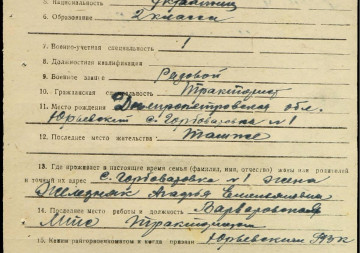 5. Национальность украинец
6. Образование 2 класса
7. Военно-учетная специальность 1
8. Должностная квалификация
9. Военное звание Рядовой
10. Гражданская специальность Тракторист
11. Место рождения Днепропетровская обл.
Юрьевский с. Горбовацовка №1
12. Последнее место жительства Также
13. Где проживает в настоящее время семья (фамилия, имя, отчество) жены или родителей
и точный их адрес с. Горбоватовка №1 жена
Железняк Агафья Емельяновна
14. Последнее место работы и должность Варваровская
Мтс Тракторист
15. Каким райгорвоенкоматом и когда призван Юрьевским РВК